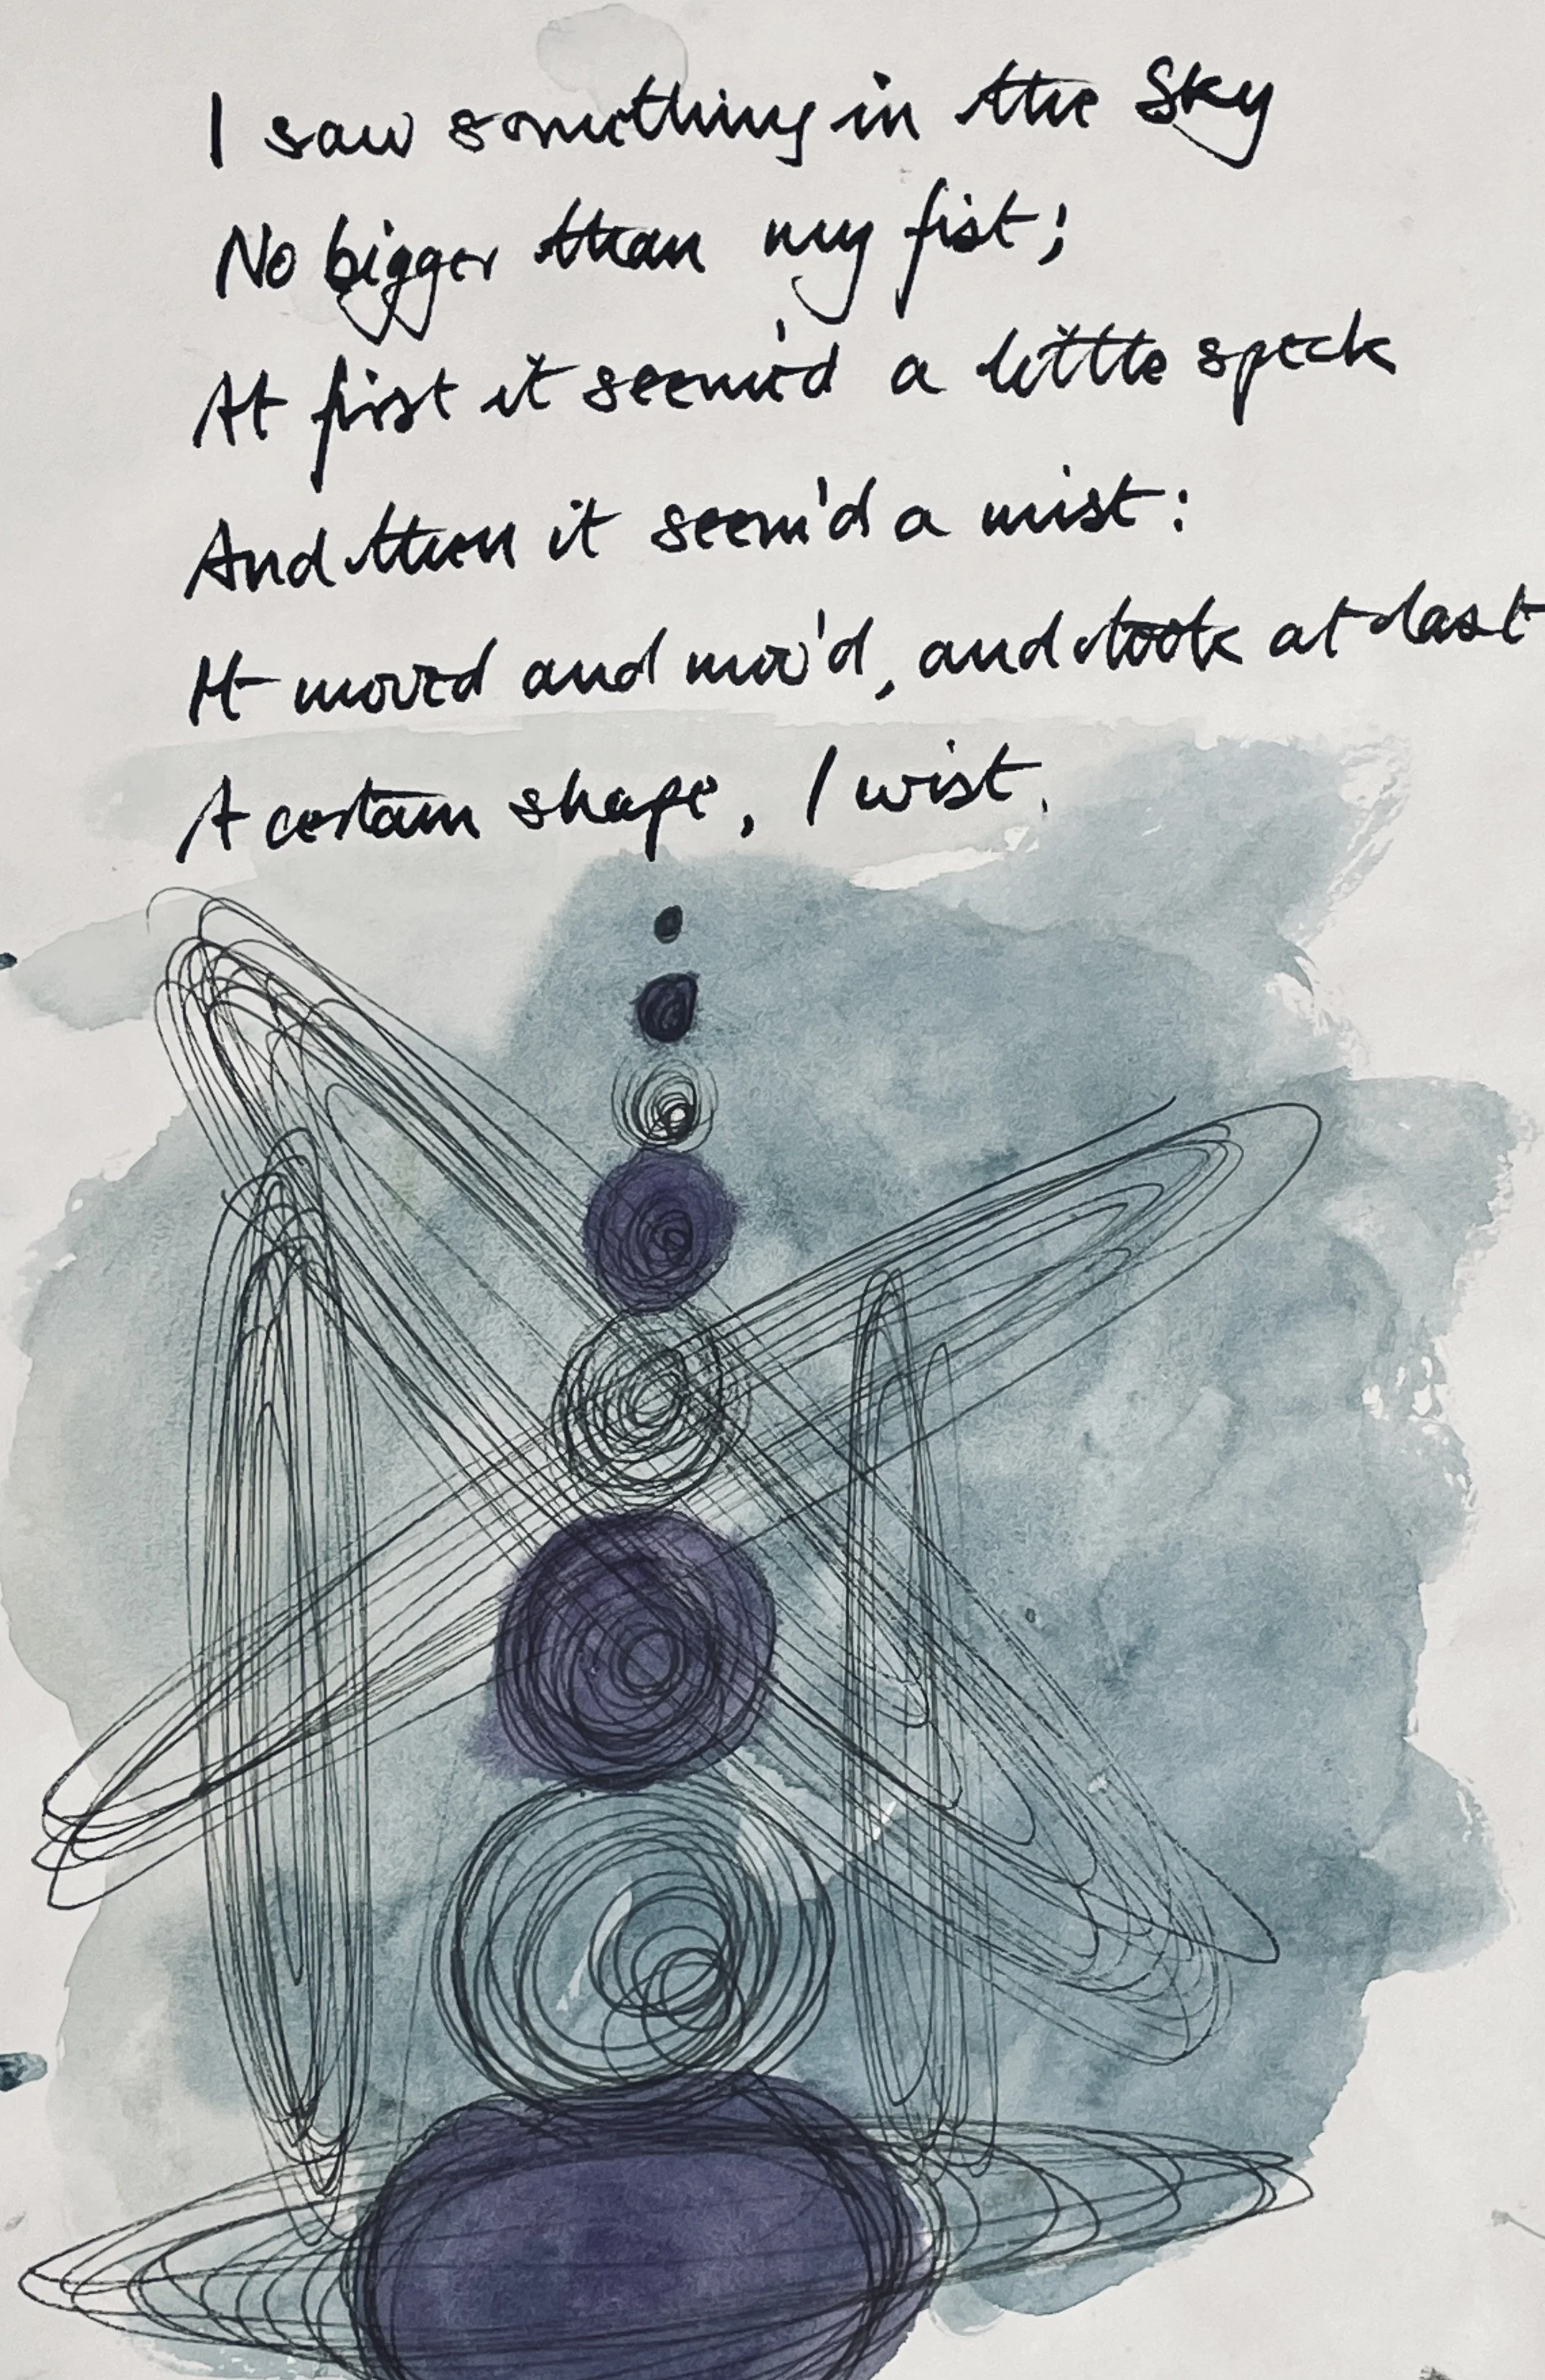 I saw something in the Sky
No bigger than my fist;
At first it seem'd a little speck
And then it seem'd a mist:
It moved and mov'd, and took at last
A certain shape, I wist.